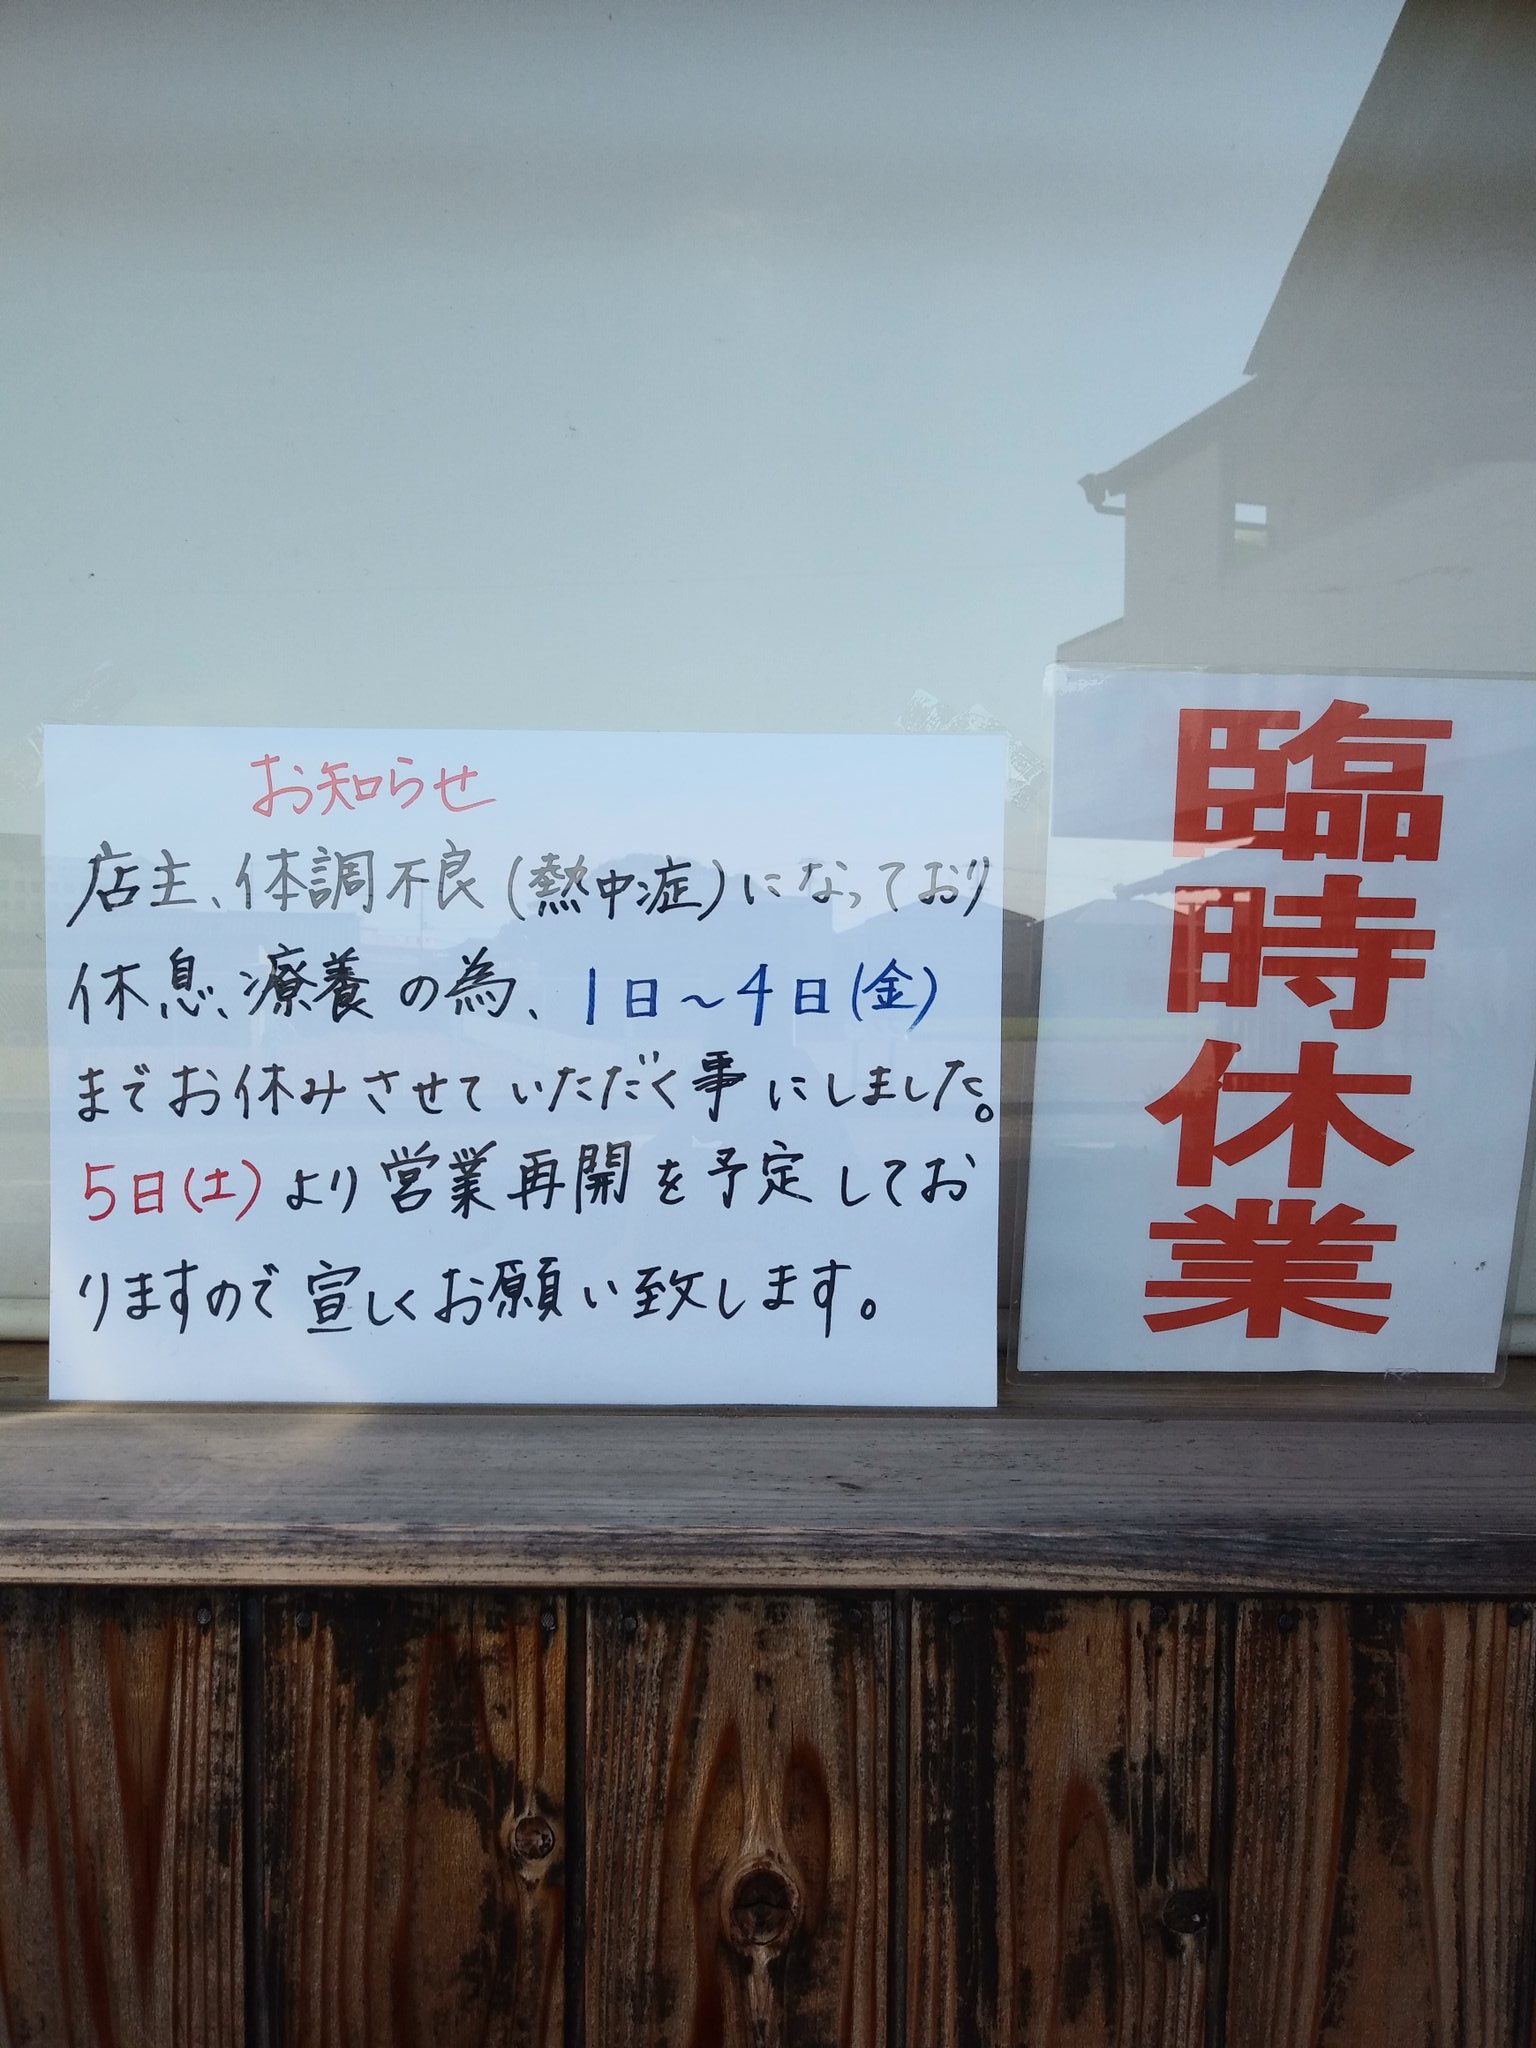 お知らせ
店主、体調不良(熱中症)になっており
休息、療養の為、1日～4日(金)
までお休みさせていただく事にしました。
5日(土)より営業再開を予定してお
りますので宜しくお願い致します。
臨時休業